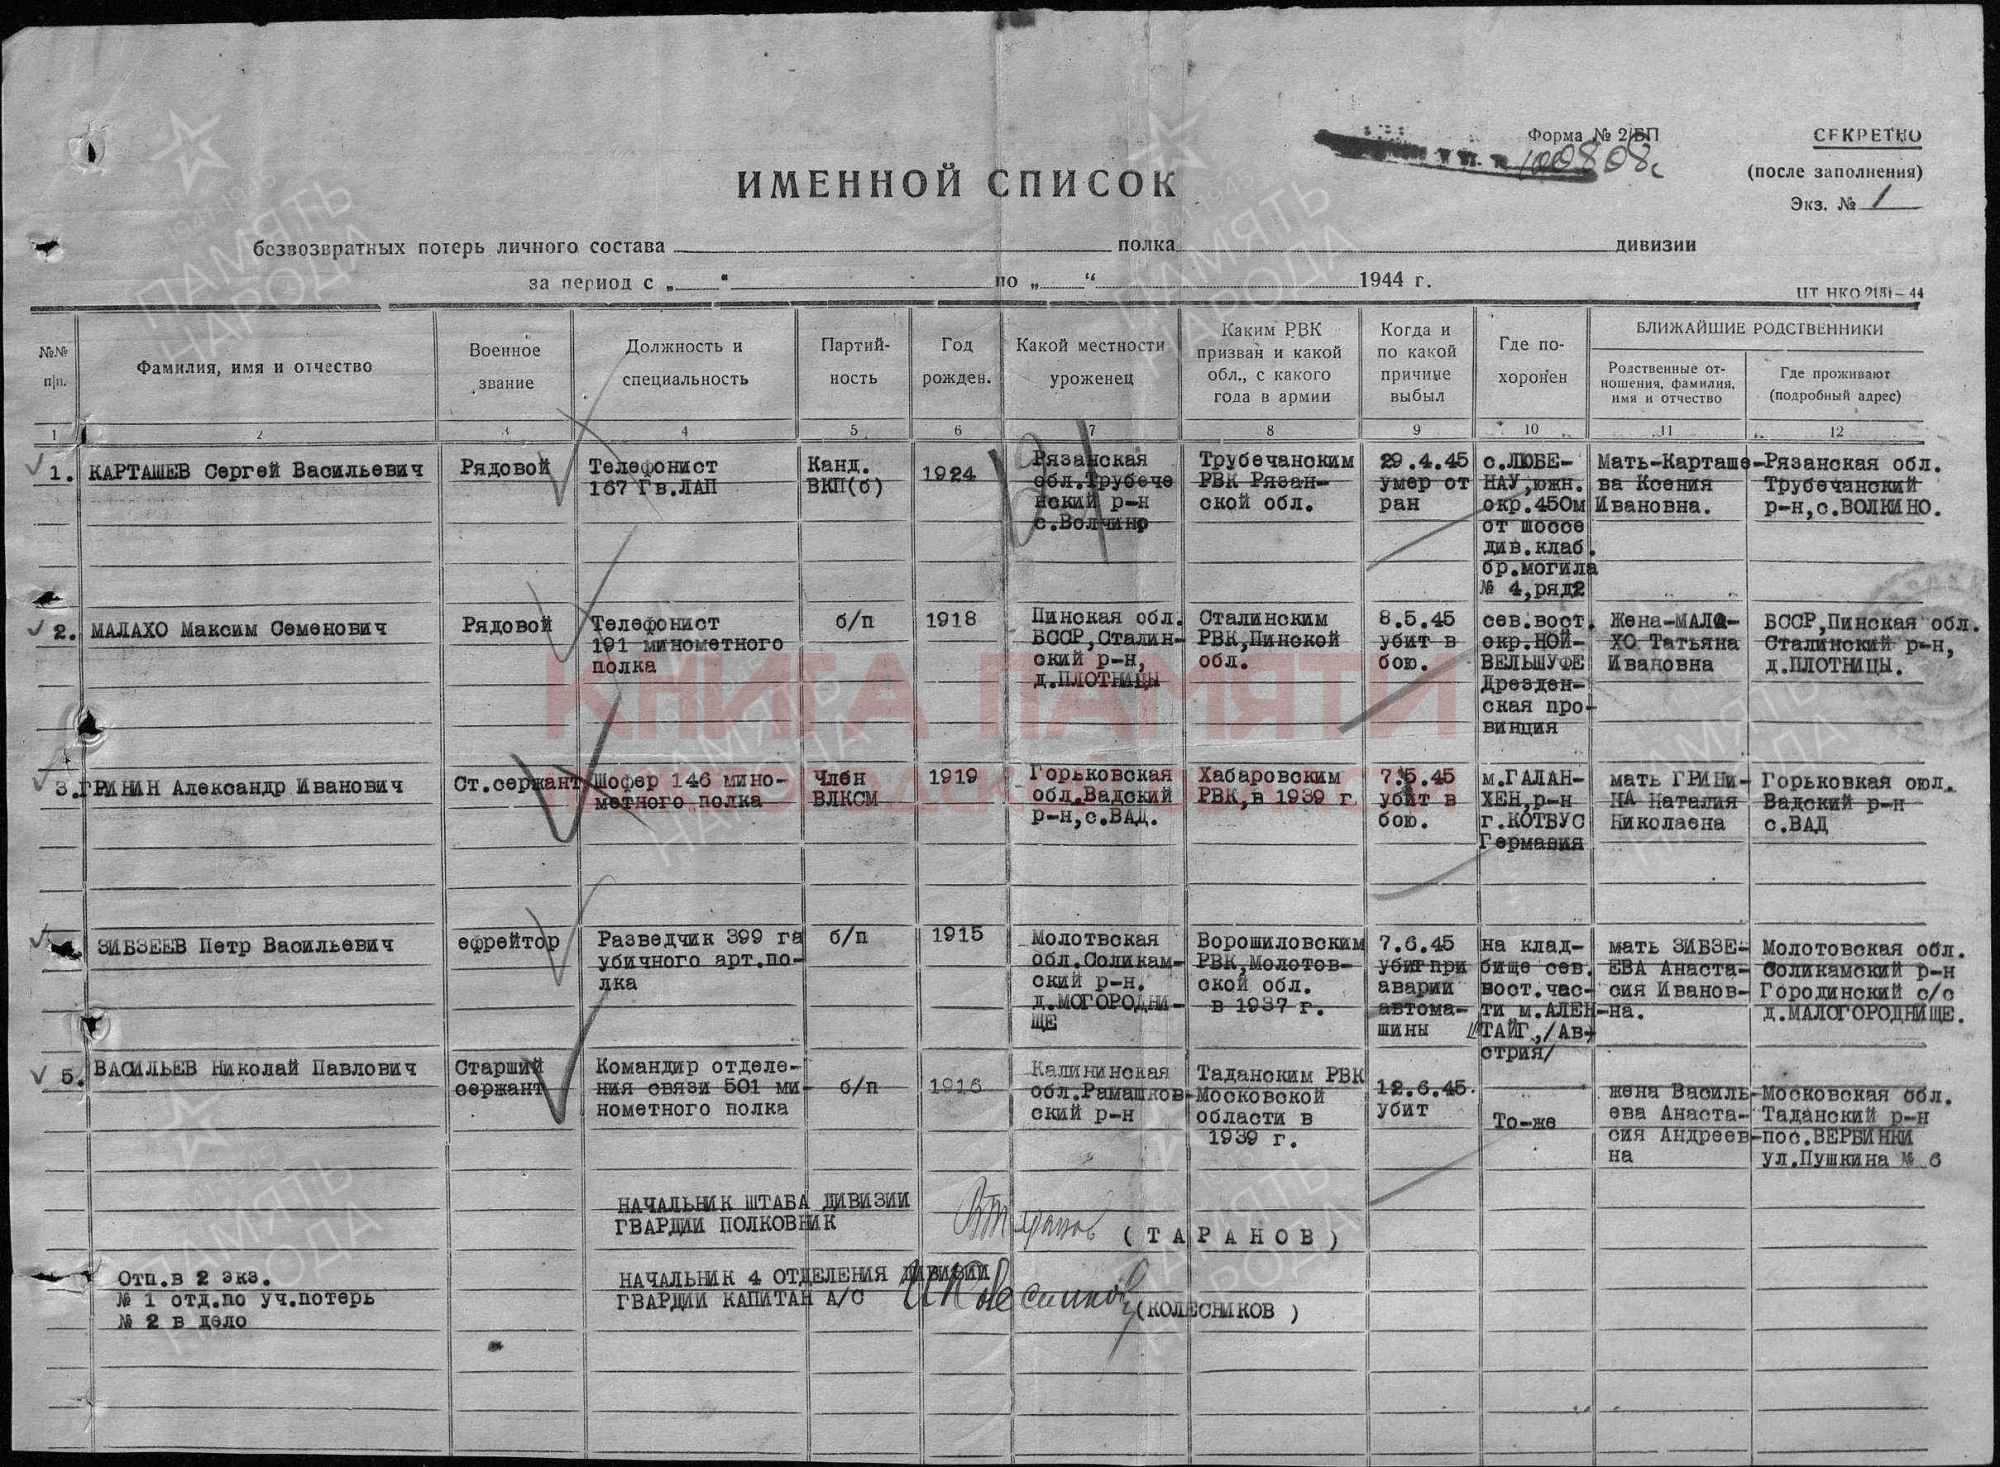 Форма № 2/БП
100808с
СЕКРЕТНО
(после заполнения)
Экз. № 1
ИМЕННОЙ СПИСОК
безвозвратных потерь личного состава полка дивизии
за период с „ “ по „ “ 1944 г.
ЦТ НКО 2151—44
№№ п/п.
Фамилия, имя и отчество
Военное звание
Должность и специальность
Партий-ность
Год рожден.
Какой местности уроженец
Каким РВК призван и какой обл., с какого года в армии
Когда и по какой причине выбыл
Где по-хоронен
БЛИЖАЙШИЕ РОДСТВЕННИКИ
Родственные от-ношения, фамилия, имя и отчество
Где проживают (подробный адрес)
1 2 3 4 5 6 7 8 9 10 11 12
1. КАРТАШЕВ Сергей Васильевич
Рядовой
Телефонист
167 Гв.ЛАП
Канд.
ВКП(б)
1924
Рязанская
обл.Трубече
нский р-н
с.Волчино
Трубечанским
РВК Рязан-
ской обл.
29.4.45
умер от
ран
с.ЛЮБЕ-
НАУ,южн.
окр.450м
от шоссе
див.клаб.
бр.могила
№ 4,ряд2
Мать-Карташе-
ва Ксения
Ивановна.
Рязанская обл.
Трубечанский
р-н,с.ВОЛКИНО.
2. МАЛАХО Максим Семенович
Рядовой
Телефонист
191 минометного
полка
б/п
1918
Пинская обл.
БССР,Сталин-
ский р-н,
д.ПЛОТНИЦЫ
Сталинским
РВК,Пинской
обл.
8.5.45
убит в
бою.
сев.вост.
окр.НОЙ-
ВЕЛЬШУФЕ
Дрезден-
ская про-
винция
Жена-МАЛА-
ХО Татьяна
Ивановна
БССР,Пинская обл.
Сталинский р-н,
д.ПЛОТНИЦЫ.
3. ГРИНИН Александр Иванович
Ст.сержант
Шофер 146 мино-
метного полка
Член
ВЛКСМ
1919
Горьковская
обл.Вадский
р-н,с.ВАД.
Хабаровским
РВК,в 1939 г.
7.5.45
убит в
бою.
м.ГАЛАН-
ХЕН,р-н
г.КОТБУС
Германия
мать ГРИНИ-
НА Наталия
Николаена
Горьковкая оюл.
Вадский р-н
с.ВАД
ЗИБЗЕЕВ Петр Васильевич
ефрейтор
Разведчик 399 га
убичного арт.по-
лка
б/п
1915
Молотвская
обл.Соликам-
ский р-н.
д.МОГОРОДНИ-
ЩЕ
Ворошиловским
РВК,Молотов-
ской обл.
в 1937 г.
7.6.45
убит при
аварии
автома-
шины
на клад-
бище сев.
вост.час-
ти м.АЛЕН-
ТАЙГ,/Ав-
стрия/
мать ЗИБЗЕ-
ЕВА Анаста-
сия Иванов-
на.
Молотовская обл.
Соликамский р-н
Городинский с/с
д.МАЛОГОРОДНИЩЕ.
5. ВАСИЛЬЕВ Николай Павлович
Старший
сержант
Командир отделе-
ния связи 501 ми-
нометного полка
б/п
1916
Калининская
обл.Рамашков-
ский р-н
Таданским РВК
Московской
области в
1939 г.
12.6.45.
убит
То-же
жена Василь-
ева Анаста-
сия Андреев-
на
Московская обл.
Таданский р-н
пос.ВЕРБИНКИ
ул.Пушкина № 6
НАЧАЛЬНИК ШТАБА ДИВИЗИИ
ГВАРДИИ ПОЛКОВНИК
(ТАРАНОВ)
НАЧАЛЬНИК 4 ОТДЕЛЕНИЯ ДИВИЗИИ
ГВАРДИИ КАПИТАН А/С
(КОЛЕСНИКОВ)
Отп.в 2 экз.
№ 1 отд.по уч.потерь
№ 2 в дело
КНИГА ПАМЯТИ
ПАМЯТЬ НАРОДА
1941-1945